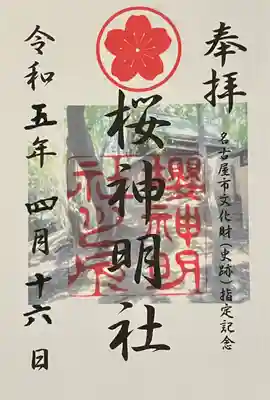 奉拝
名古屋市文化財(史跡)指定記念
桜神明社
櫻神明
社之印
令和五年 四月十六日